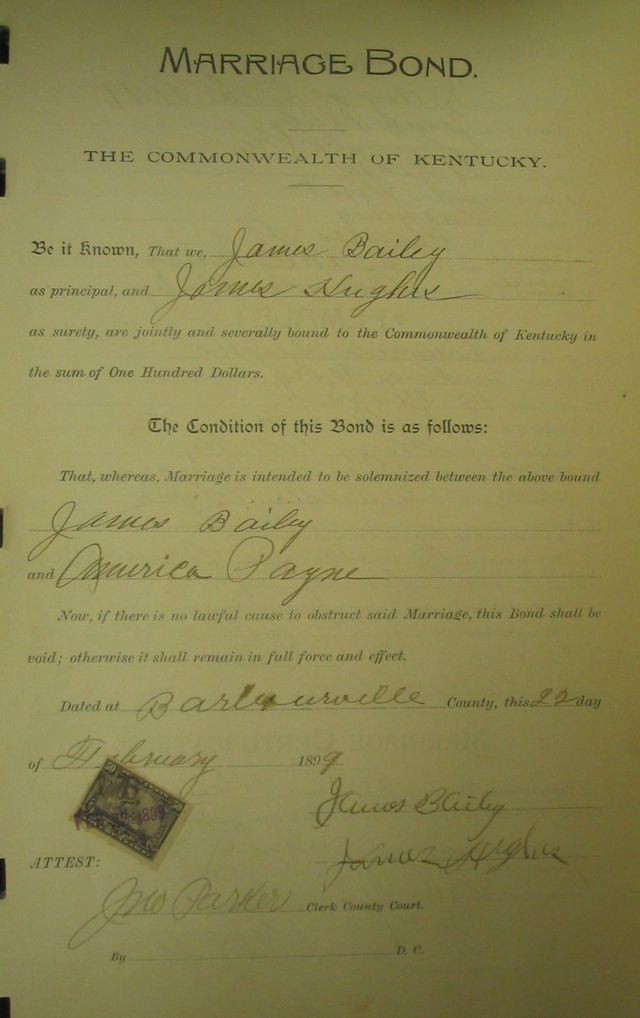 MARRIAGE BOND.
THE COMMONWEALTH OF KENTUCKY.
Be it Known, That we, James Bailey
as principal, and James Hughes
as surety, are jointly and severally bound to the Commonwealth of Kentucky in
the sum of One Hundred Dollars.
The Condition of this Bond is as follows:
That, whereas, Marriage is intended to be solemnized between the above bound
James Bailey
and America Payne
Now, if there is no lawful cause to obstruct said Marriage, this Bond shall be
void; otherwise it shall remain in full force and effect.
Dated at Barbourville County, this 22 day
of February 1899
James Bailey
James Hughes
ATTEST:
Jno Parker Clerk County Court.
By D. C.